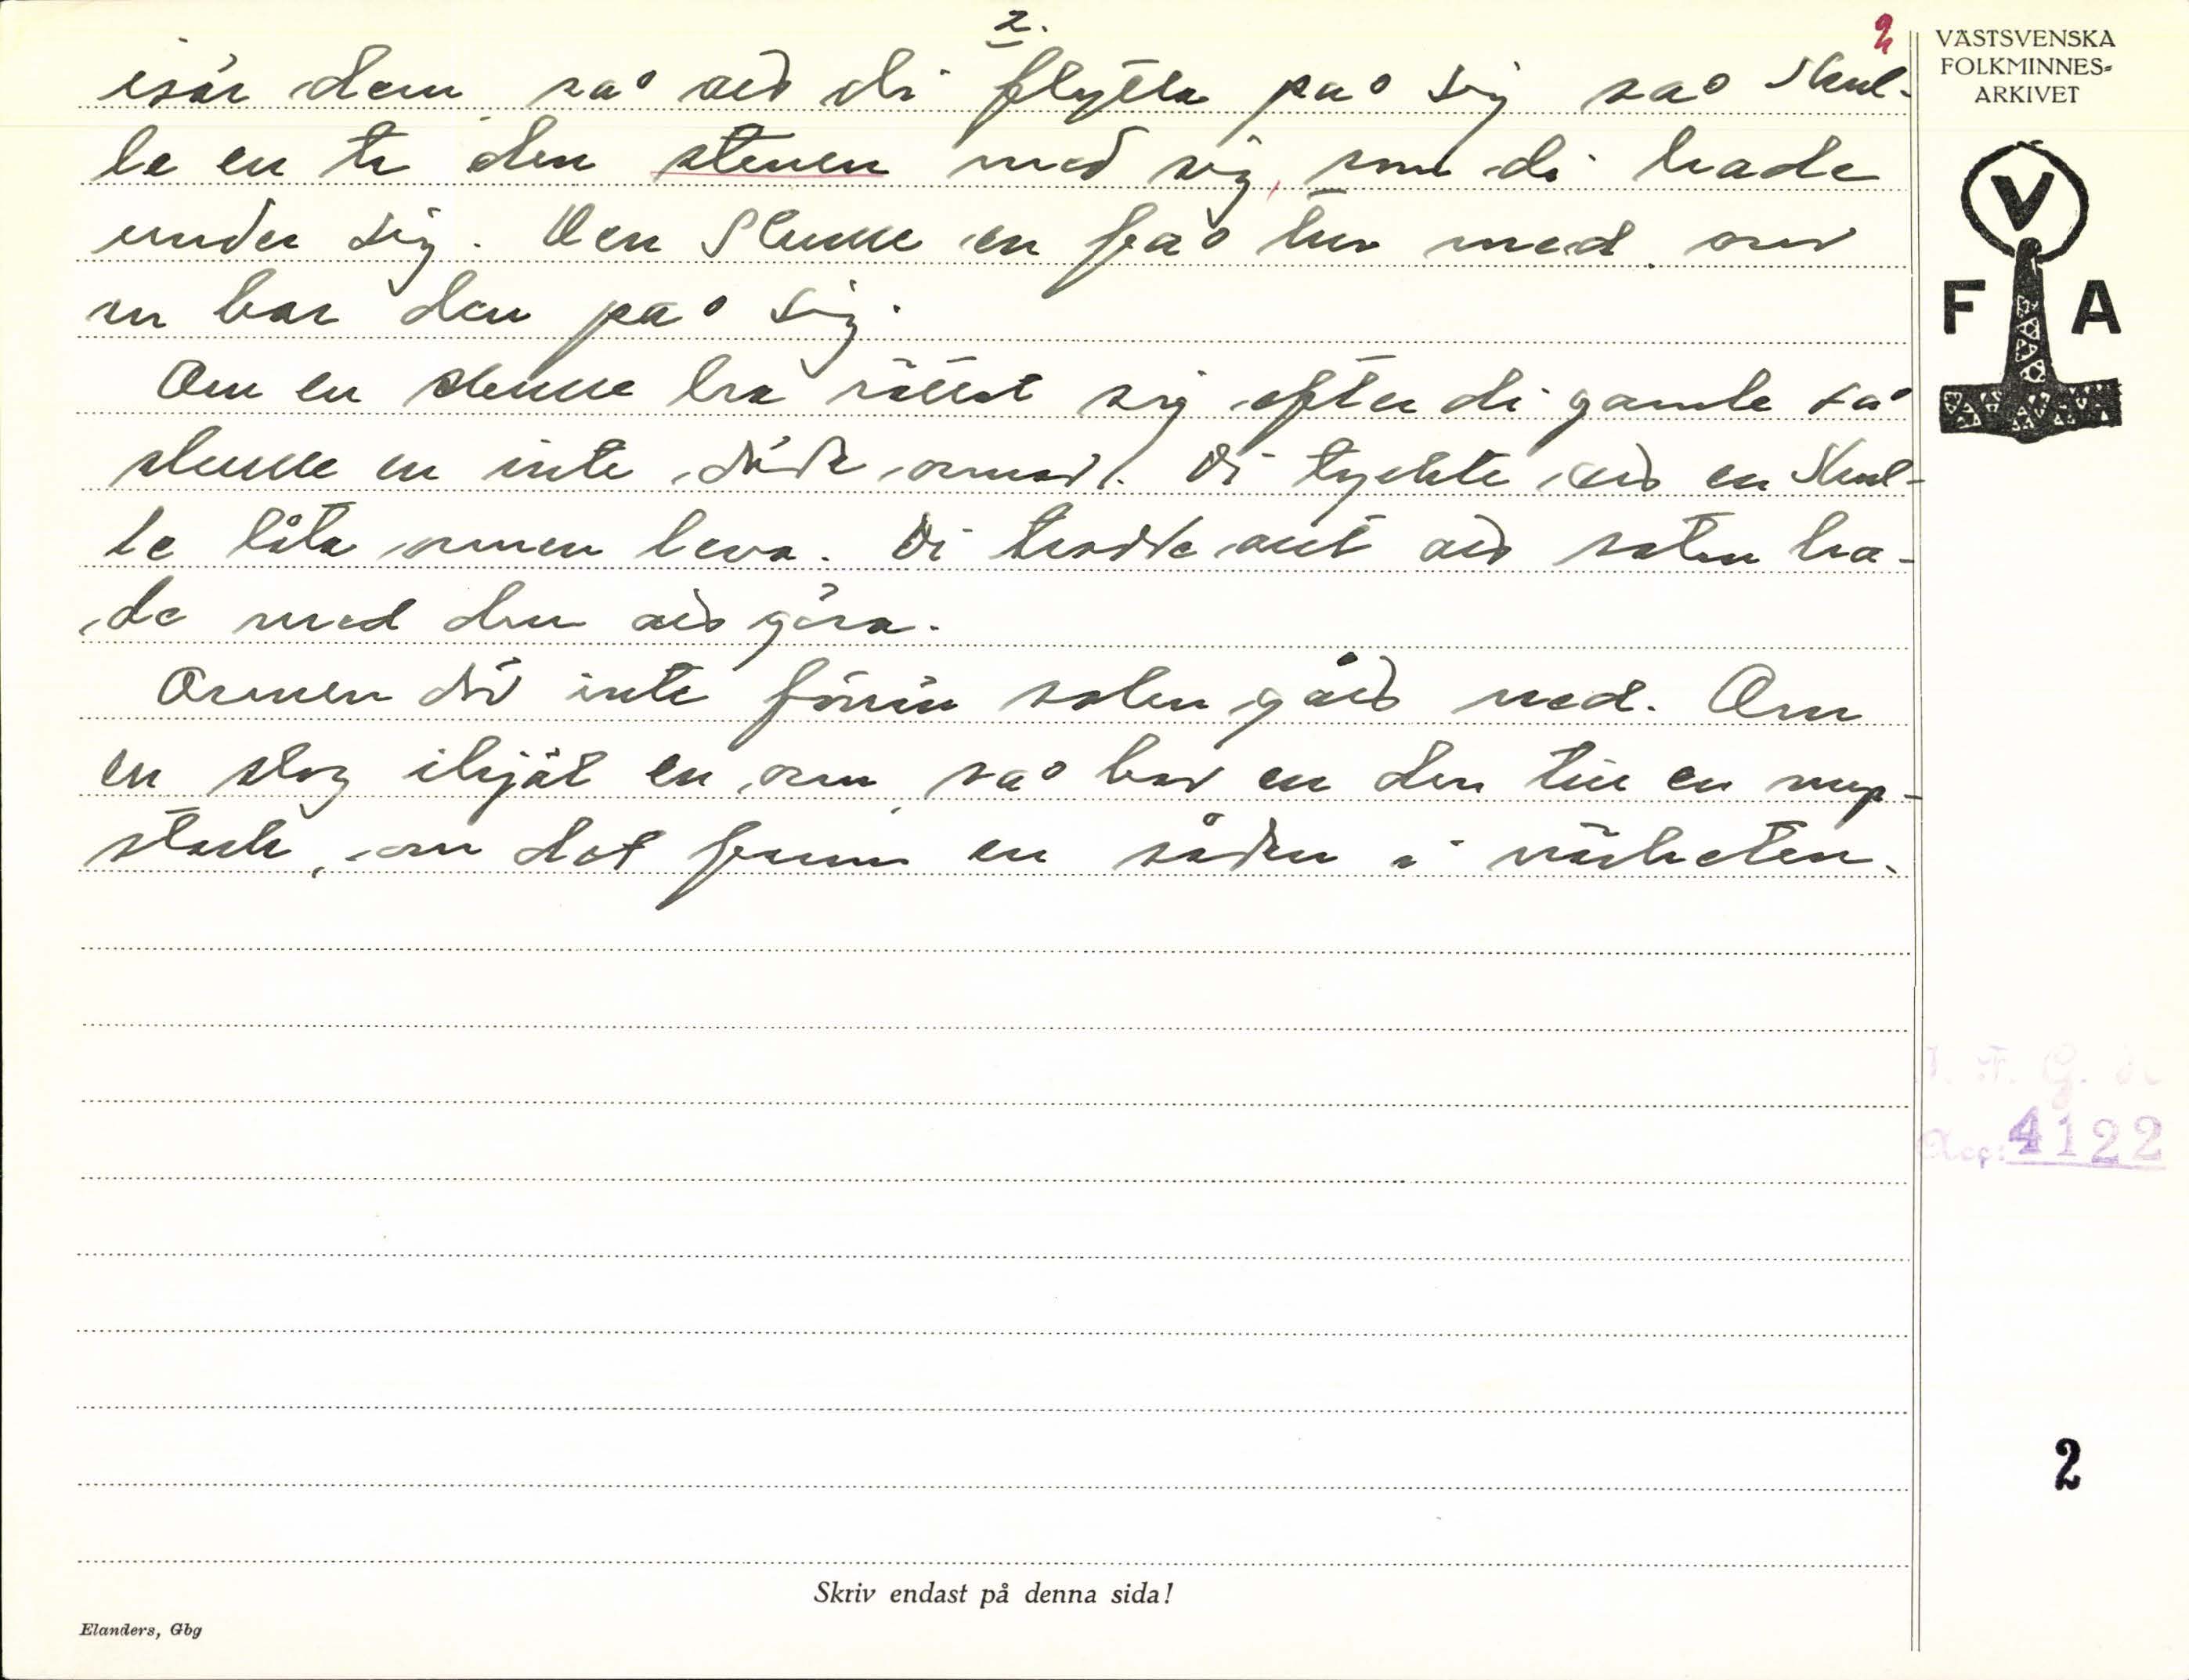 2.
2
isär dem så att di flytta på sig så skul-
le en ta den stenen med sig, som di hade
under sig. Den skulle en få tur med om
en bar den på sig.
Om en skulle ha rättat sig efter di gamle så
skulle en inte döda ormar. Di tyckte att en skul-
le låta ormen leva. Di trodde att att solen ha-
de med den att göra.
Ormen dör inte förrän solen gått ned. Om
en slog ihjäl en orm, så bar en den till en myr-
stack, om det fanns en sådan i närheten.
VÄSTSVENSKA
FOLKMINNES-
ARKIVET
V
F A
I. F. G. 
Acc: 4122
2
Skriv endast på denna sida!
Elanders, Gbg